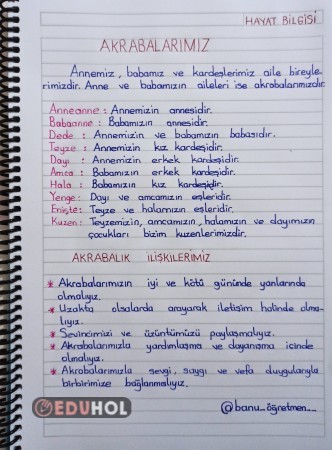 HAYAT BİLGİSİ
AKRABALARIMIZ
Annemiz, babamız ve kardeşlerimiz aile bireyle-
rimizdir. Anne ve babamızın aileleri ise akrabalarımızdır.
Anneanne: Annemizin annesidir.
Babaanne: Babamızın annesidir.
Dede: Annemizin ve babamızın babasıdır.
Teyze: Annemizin kız kardeşidir.
Dayı: Annemizin erkek kardeşidir.
Amca: Babamızın erkek kardeşidir.
Hala: Babamızın kız kardeşidir.
Yenge: Dayı ve amcamızın eşleridir.
Enişte: Teyze ve halamızın eşleridir.
Kuzen: Teyzemizin, amcamızın, halamızın ve dayımızın
çocukları bizim kuzenlerimizdir.
AKRABALIK İLİŞKİLERİMİZ
* Akrabalarımızın iyi ve kötü gününde yanlarında
olmalıyız.
* Uzakta olsalarda arayarak iletişim halinde olma-
lıyız.
* Sevincimizi ve üzüntümüzü paylaşmalıyız.
* Akrabalarımızla yardımlaşma ve dayanışma içinde
olmalıyız.
* Akrabalarımızla sevgi, saygı ve vefa duygularıyla
birbirimize bağlanmalıyız.
EDUHOL
@banu_öğretmen__